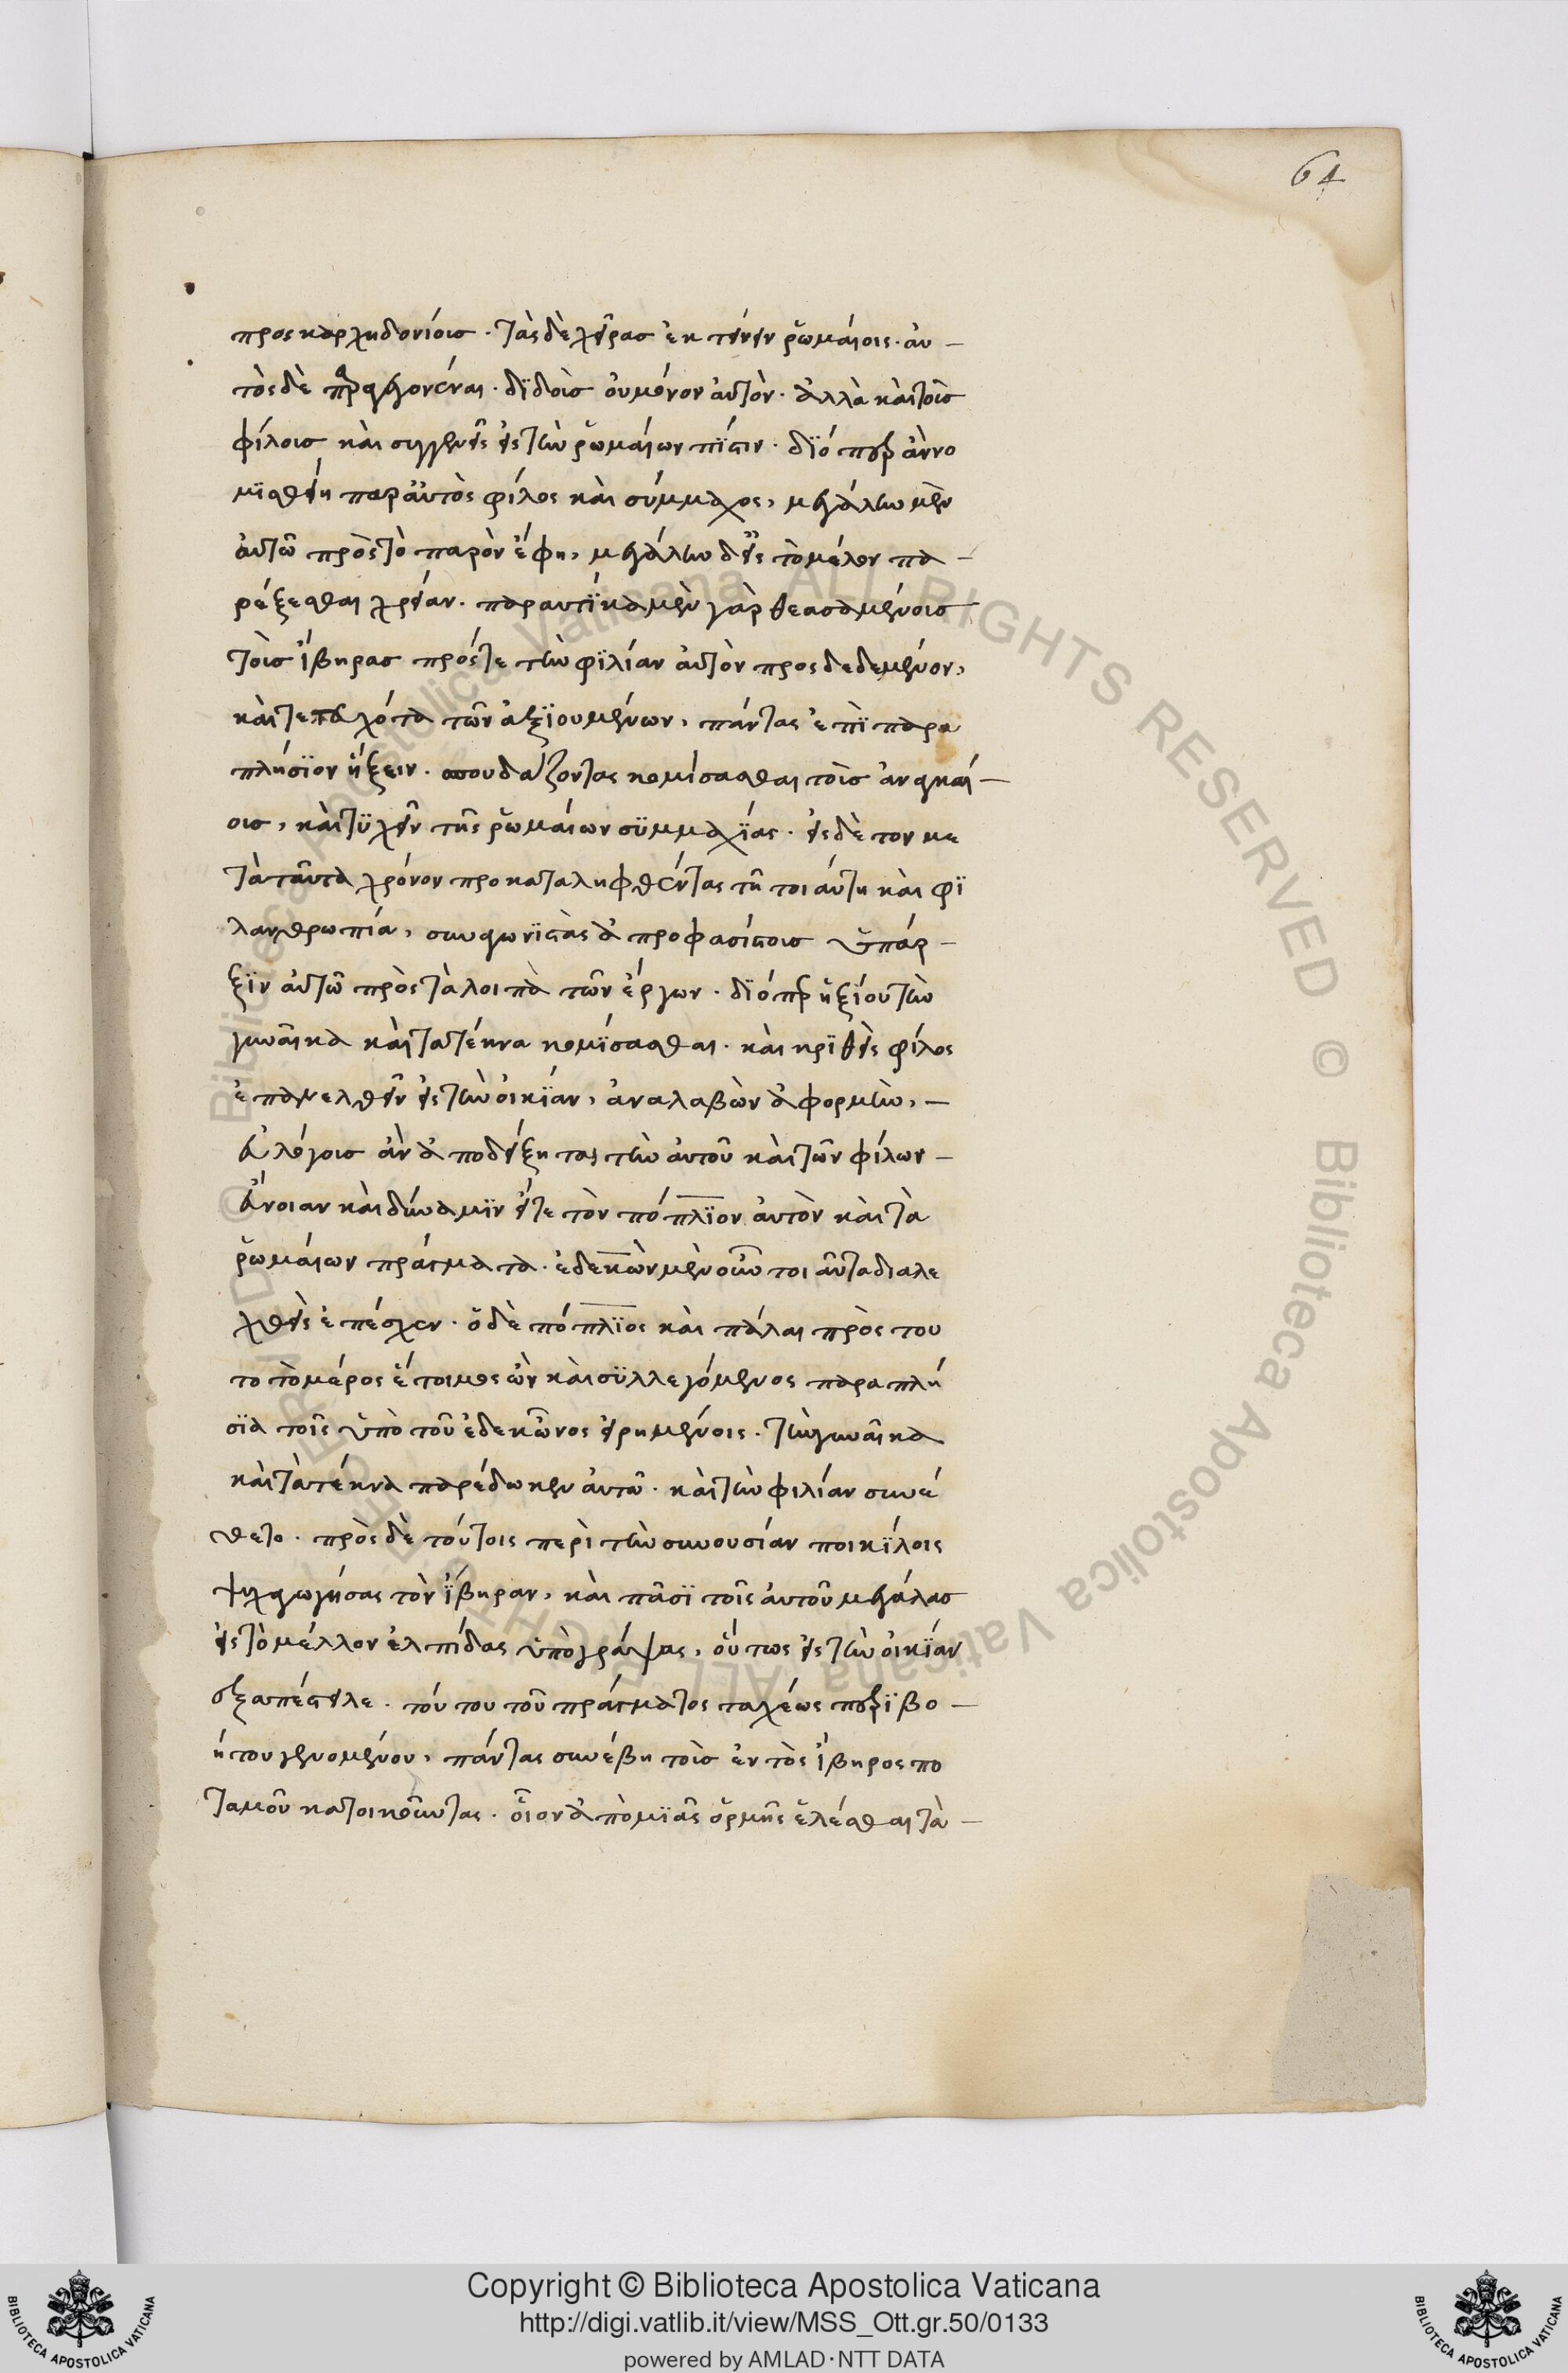 64
προς καρχηδονίοις. τὰς δὲ χεῖρας ἐκτείνειν ῥωμαίοις. αυ-
τὸς δὲ παραγεγονέναι. διδοὺς οὐ μόνον αὐτὸν. ἀλλὰ καὶ τοὺς
φίλους καὶ συγγενεῖς εἰς τὴν ῥωμαίων πίστιν. διόπερ ἂν νο
μισθείη παρ' αὐτὸς φίλος καὶ σύμμαχος, μεγάλην μὲν
αὐτῶ πρὸς τὸ παρὸν ἔφη, μεγάλην δ' εἰς τὸ μέλον πα-
ρέξεσθαι χρείαν. παραυτίκα μὲν γὰρ θεασαμένους
τοὺς ἴβηρας πρός τε τὴν φιλίαν αὐτὸν προσδεδεμένον,
καὶ τετευχότα τῶν ἀξιουμένων, πάντας ἐπὶ παρα
πλήσιον ἥξειν. σπουδάζοντας κομίσασθαι τοὺς ἀναγκαί-
ους, καὶ τυχεῖν τῆς ῥωμαίων συμμαχίας. εἰς δὲ τον με
τὰ ταῦτα χρόνον προκαταληφθέντας τῆ τοιαύτη καὶ φι
λανθρωπία, συναγωνιστὰς ἀπροφασίστους ὑπάρ-
ξιν αὐτῶ πρὸς τὰ λοιπὰ τῶν ἔργων. διόπερ ἠξίου τὴν
γυναῖκα καὶ τα τέκνα κομίσασθαι. καὶ κριθεὶς φίλος
ἐπανελθεῖν εἰς τὴν οἰκίαν, ἀναλαβὼν ἀφορμὴν,-
εὐλόγους ἂν ἀποδείξηται τὴν αὐτοῦ καὶ τῶν φίλων-
εὔνοιαν καὶ δύναμιν εἴς τε τὸν πόπλιον αὐτὸν καὶ τὰ
ῥωμαίων πράγματα. ἐδεκὼν μὲν οὖν τοιαῦτα διαλε
χθεὶς ἐπέσχεν. ὁ δὲ πόπλιος καὶ πάλαι πρὸς του
το τὸ μέρος ἕτοιμος ὢν καὶ συλλεγόμενος παραπλή
σια τοῖς ὑπὸ τοῦ ἐδεκῶνος εἰρημένοις. τὴν γυναῖκα
καὶ τὰ τέκνα παρέδωκεν αὐτῶ. καὶ τὴν φιλίαν συνέ
θετο. πρὸς δὲ τούτοις περὶ τὴν συνουσίαν ποικίλοις
ψυχαγωγήσας τὸν ἴβηραν, καὶ πᾶσι τοῖς αὐτοῦ μεγάλας
εἰς τὸ μέλλον ἐλπίδας ὑπογράψας, οὕτως εἰς τὴν οἰκίαν
ἐξαπέστειλε. τούτου τοῦ πράγματος ταχέως περιβο-
ήτου γενομένου, πάντας συνέβη τοὺς ἐντὸς ἴβηρος πο
ταμοῦ κατοικοῦντας. οἷον ἀπὸ μιᾶς ὁρμῆς ἑλέσθαι τὰ-
Copyright © Biblioteca Apostolica Vaticana
http://digi.vatlib.it/view/MSS_Ott.gr.50/0133
powered by AMLAD·NTT DATA